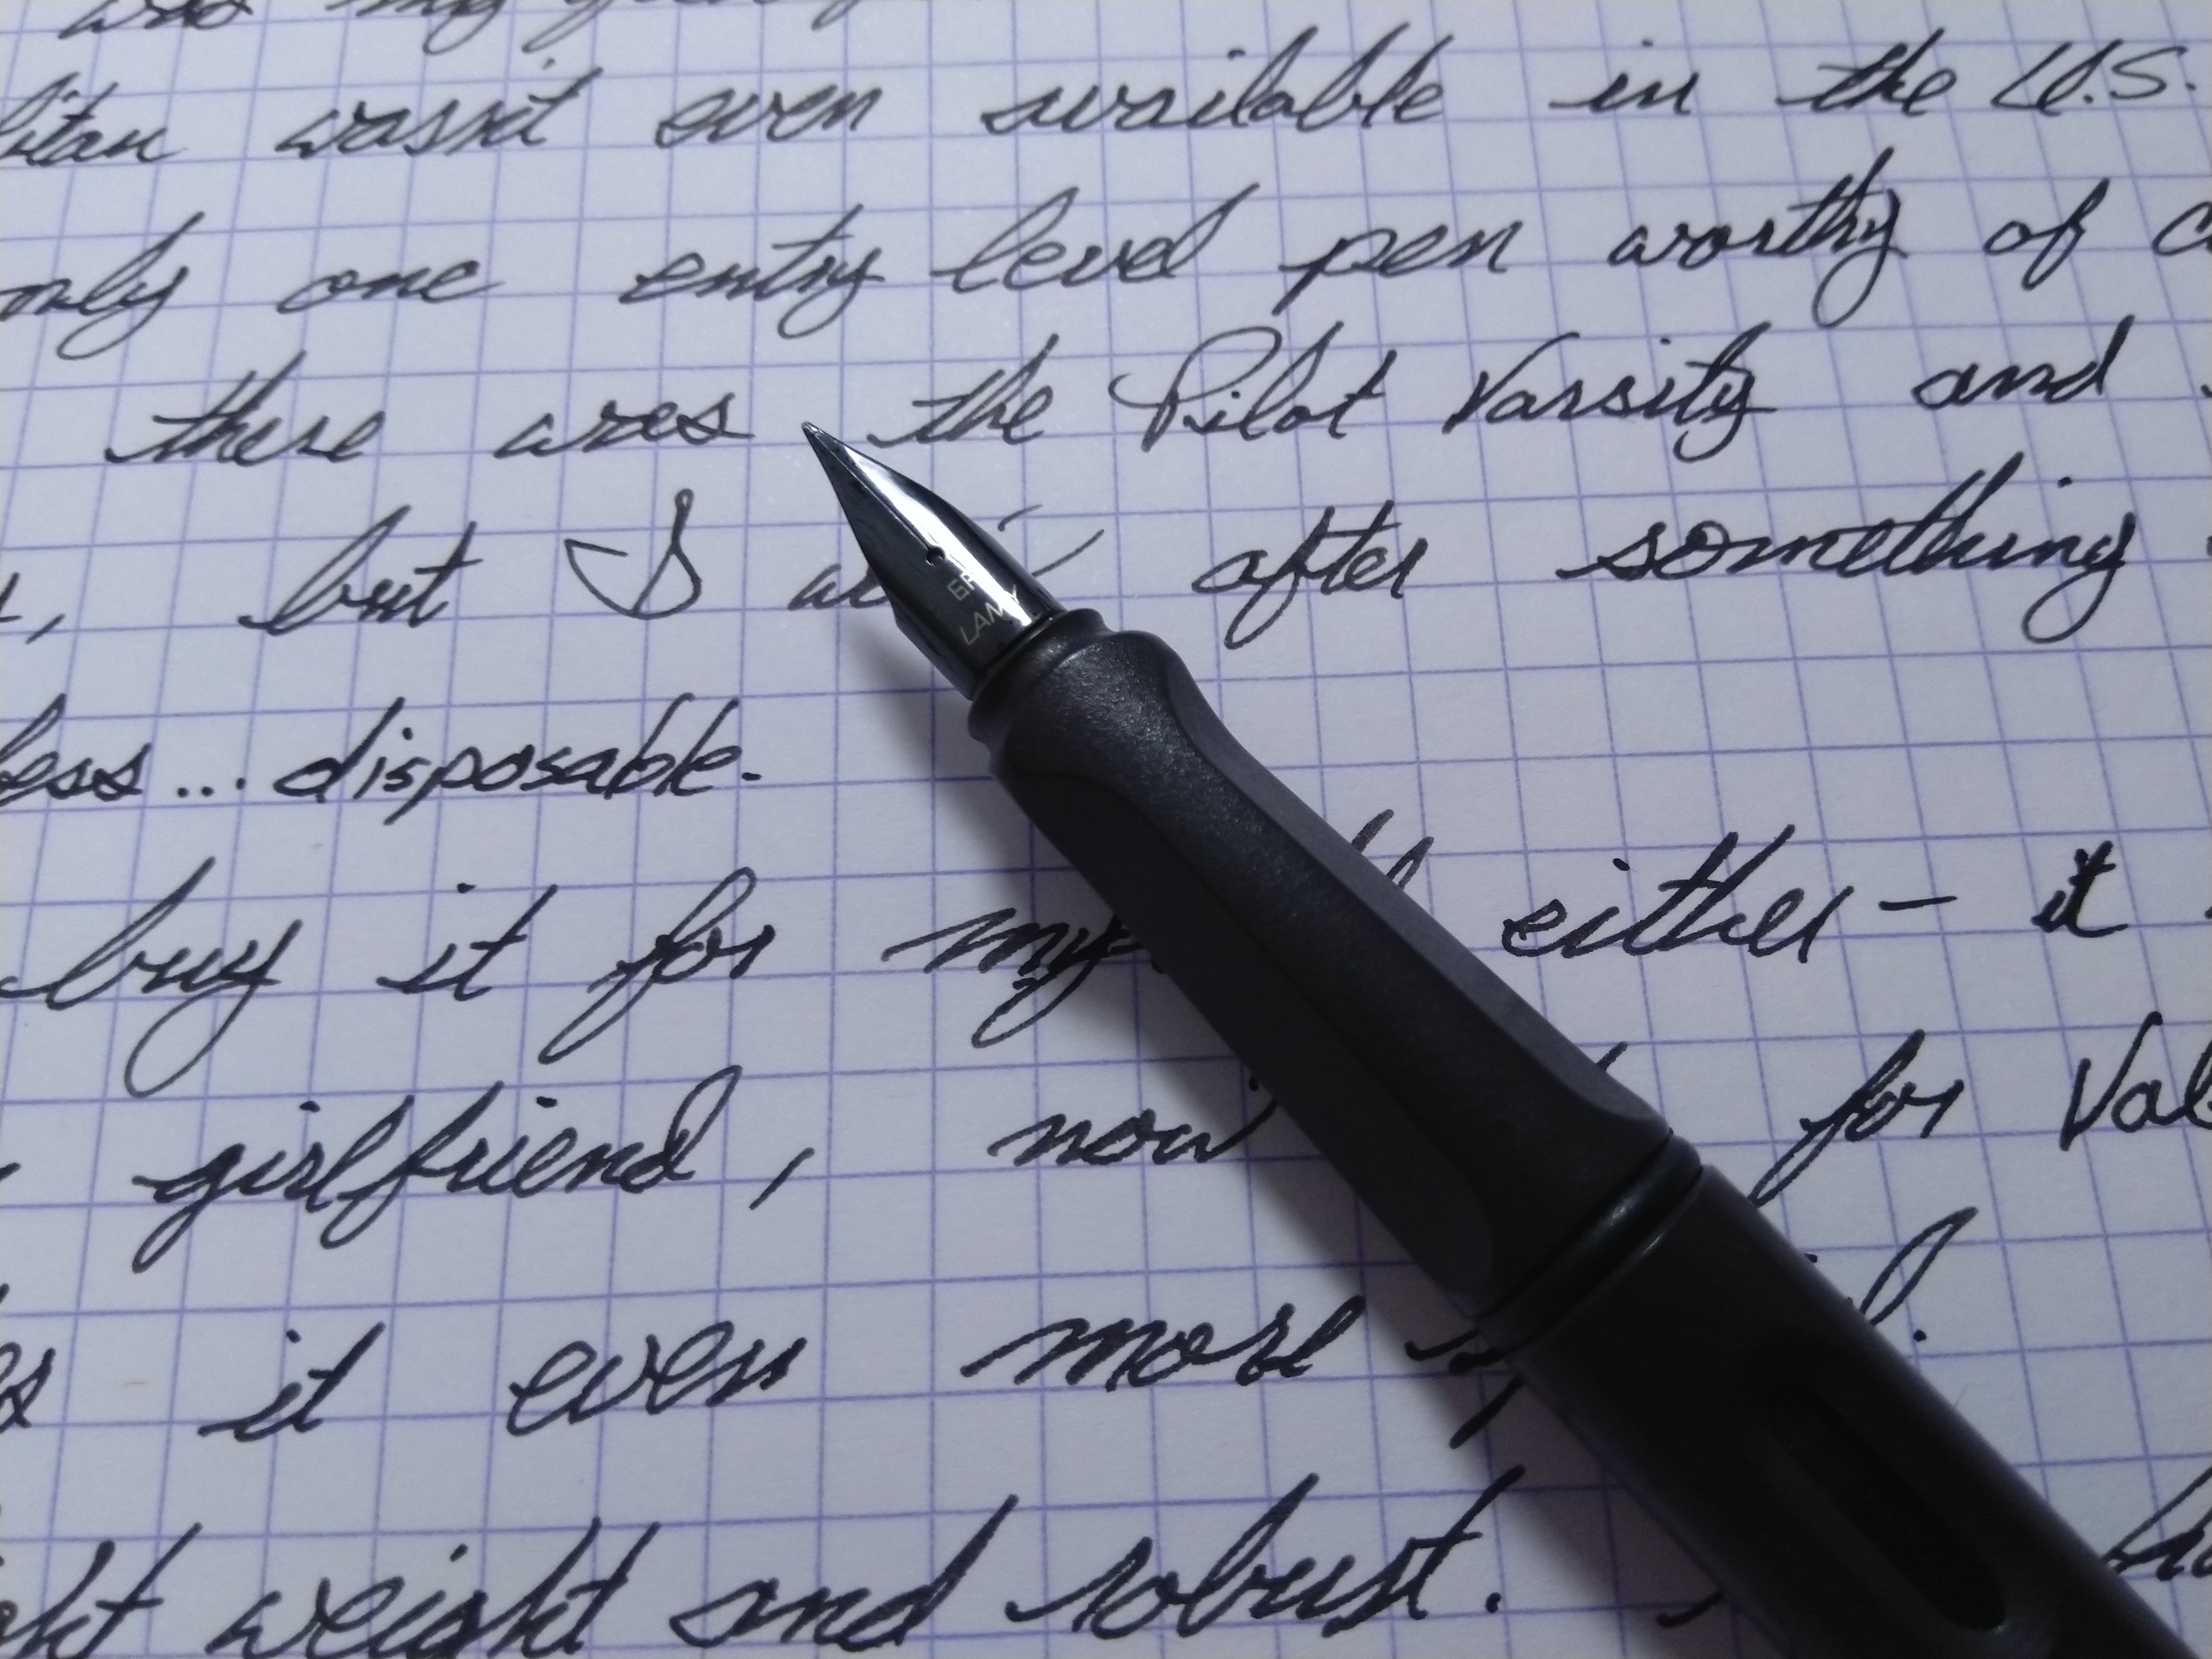 was my
wasn't even available in the U.S.
only one entry level pen worthy of
there was the Pilot Varsity and
but I after something
less... disposable.
buy it for either - it
girlfriend, now for
it even more
weight and robust.
EF
LAMY